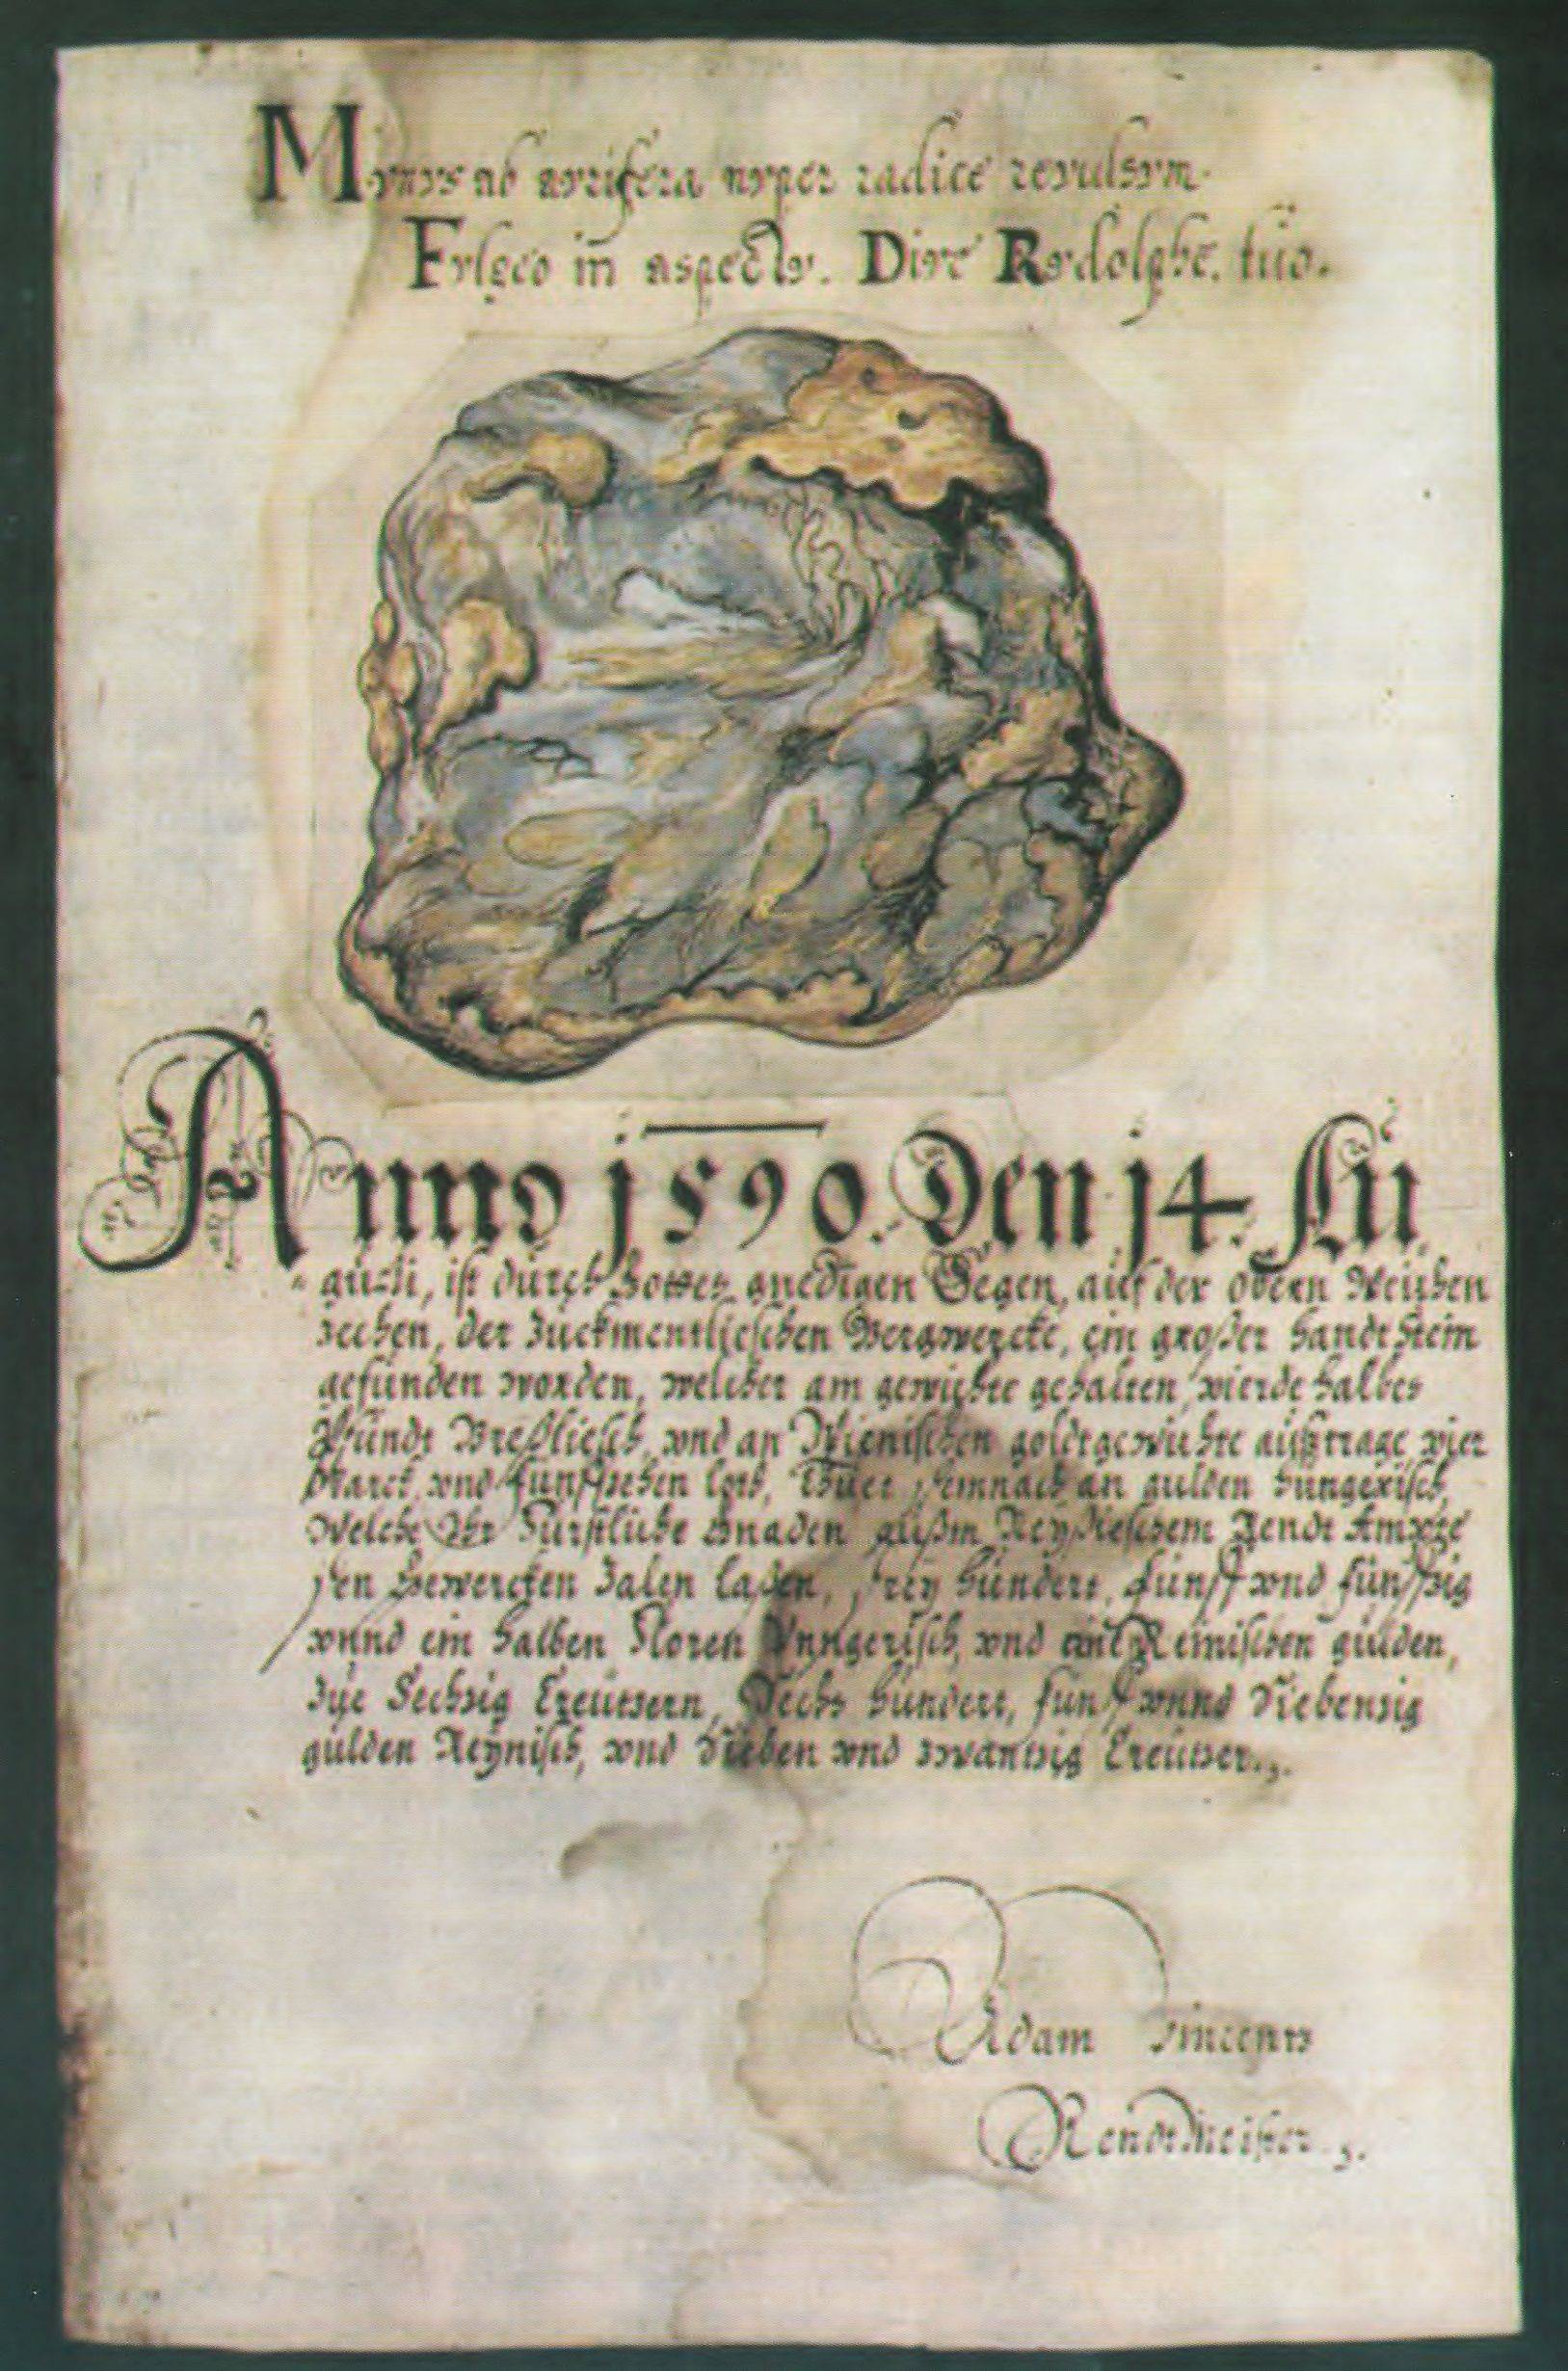 Munus ab aurifera nuper radice reuulsum.
Fulgeo in aspectu. Diue Rudolphe. tuo.
Anno 1590. Den 14. Au
gusti, ist durch Gottes gnedigen Segen, auf der obern Reichen
zechen, der Zuckmentlieschen Bergwercke, ein großer handtstein
gefunden worden, welcher am gewichte gehalten, vierdehalbes
Pfundt Breßliesch, vnd an Wienischen goldtgewichte außtrage vier
Marck, vnd funffzehen loth, Thuet demnach an gulden hungerisch,
Welche Ihr Furstliche Gnaden außm Zendt Ampte
den Gewercken Zalen laßen, drey hundert, funff vnd funffzig
vnnd ein halben Floren Vnngerisch, vnd einen Reinischen gulden,
Zue Sechzig Creutzern, Sechs hundert, funff vnnd Siebenzig
gulden Reynisch, vnd Sieben vnd zwantzig Creutzer.
Adam Vincentz
Rendtmeister